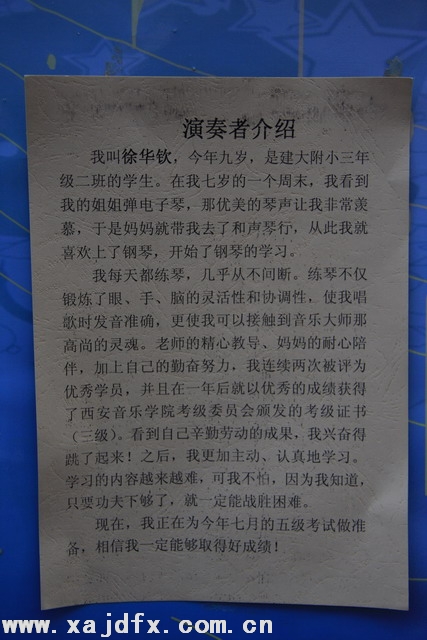 演奏者介绍
我叫徐华钦，今年九岁，是建大附小三年
级二班的学生。在我七岁的一个周末，我看到
我的姐姐弹电子琴，那优美的琴声让我非常羡
慕，于是妈妈就带我去了和声琴行，从此我就
喜欢上了钢琴，开始了钢琴的学习。
我每天都练琴，几乎从不间断。练琴不仅
锻炼了眼、手、脑的灵活性和协调性，使我唱
歌时发音准确，更使我可以接触到音乐大师那
高尚的灵魂。老师的精心教导、妈妈的耐心陪
伴，加上自己的勤奋努力，我连续两次被评为
优秀学员，并且在一年后就以优秀的成绩获得
了西安音乐学院考级委员会颁发的考级证书
（三级）。看到自己辛勤劳动的成果，我兴奋得
跳了起来！之后，我更加主动、认真地学习。
学习的内容越来越难，可我不怕，因为我知道，
只要功夫下够了，就一定能战胜困难。
现在，我正在为今年七月的五级考试做准
备，相信我一定能够取得好成绩！
www.xajdfx.com.cn